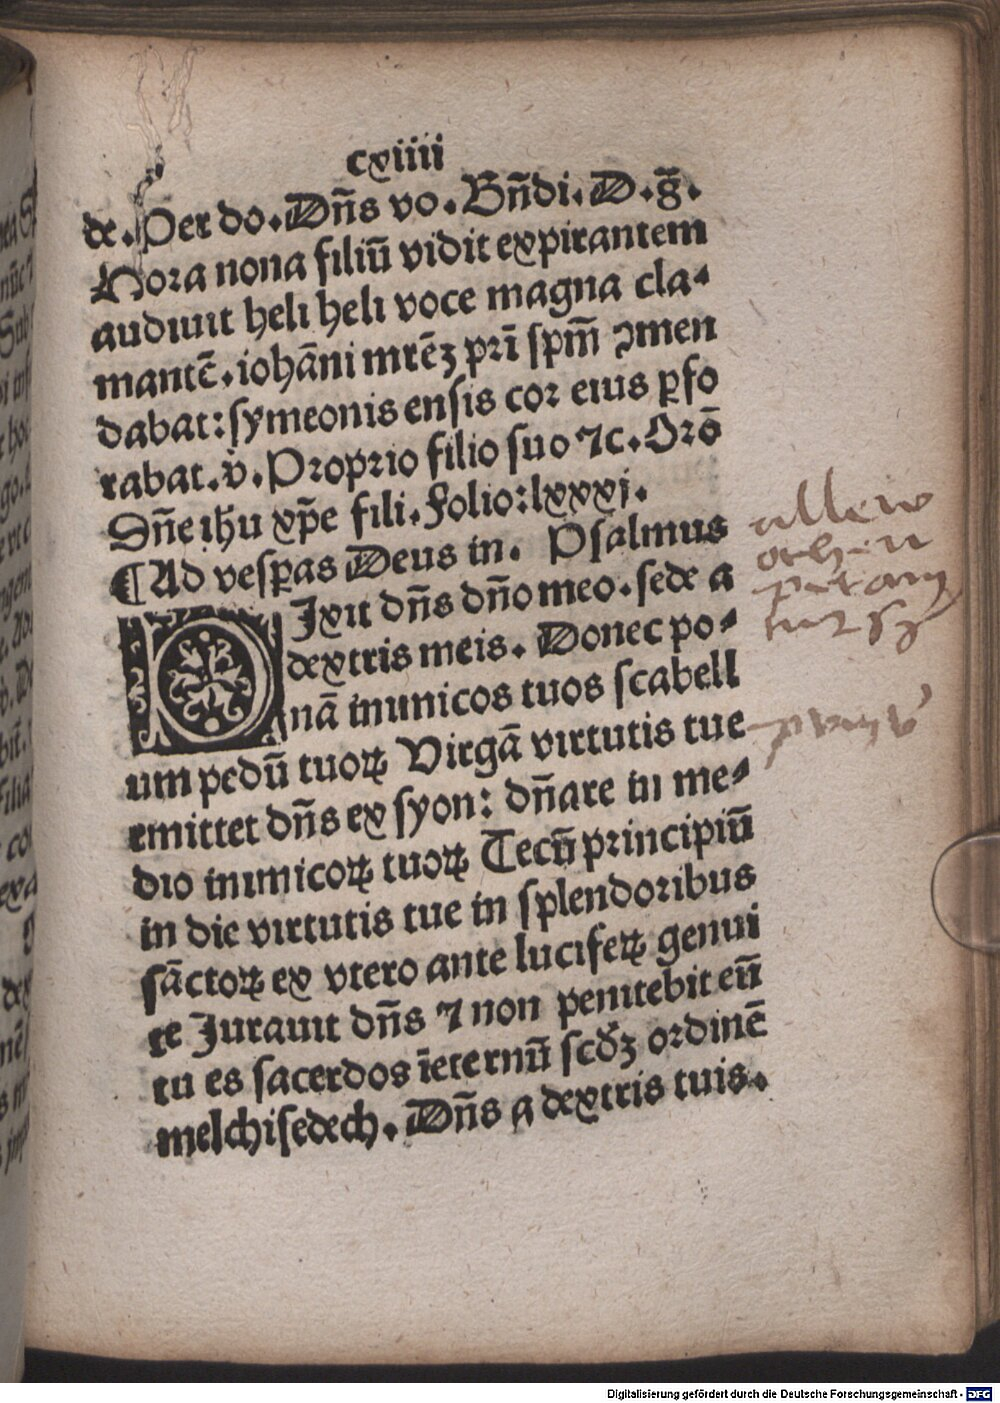 cxiiii
de. Per do. Dn̄s vo. Bn̄di. D. ḡ.
Hora nona filiū vidit expirantem
audiuit heli heli voce magna cla-
mantē. iohāni mrēꝫ pr̄i sp̄m ꝯmen
dabat: symeonis ensis cor eius ꝑfo
rabat. v̄. Proprio filio suo ⁊c. Orō
Dn̄e ihu xp̄e fili. Folio: lxxxj.
¶ Ad vesꝑas Deus in. Psalmus
Dixit dn̄s dn̄o meo. sede a
dextris meis. Donec po-
nā inimicos tuos scabell
um pedū tuoꝝ Virgā virtutis tue
emittet dn̄s ex syon: dn̄are in me-
dio inimicoꝝ tuoꝝ Tecū principiū
in die virtutis tue in splendoribus
sāctoꝝ ex vtero ante luciferꝝ genui
te Jurauit dn̄s ⁊ non penitebit eū
tu es sacerdos īeternū scd̄ꝫ ordinē
melchisedech. Dn̄s a dextris tuis.
Digitalisierung gefördert durch die Deutsche Forschungsgemeinschaft - DFG